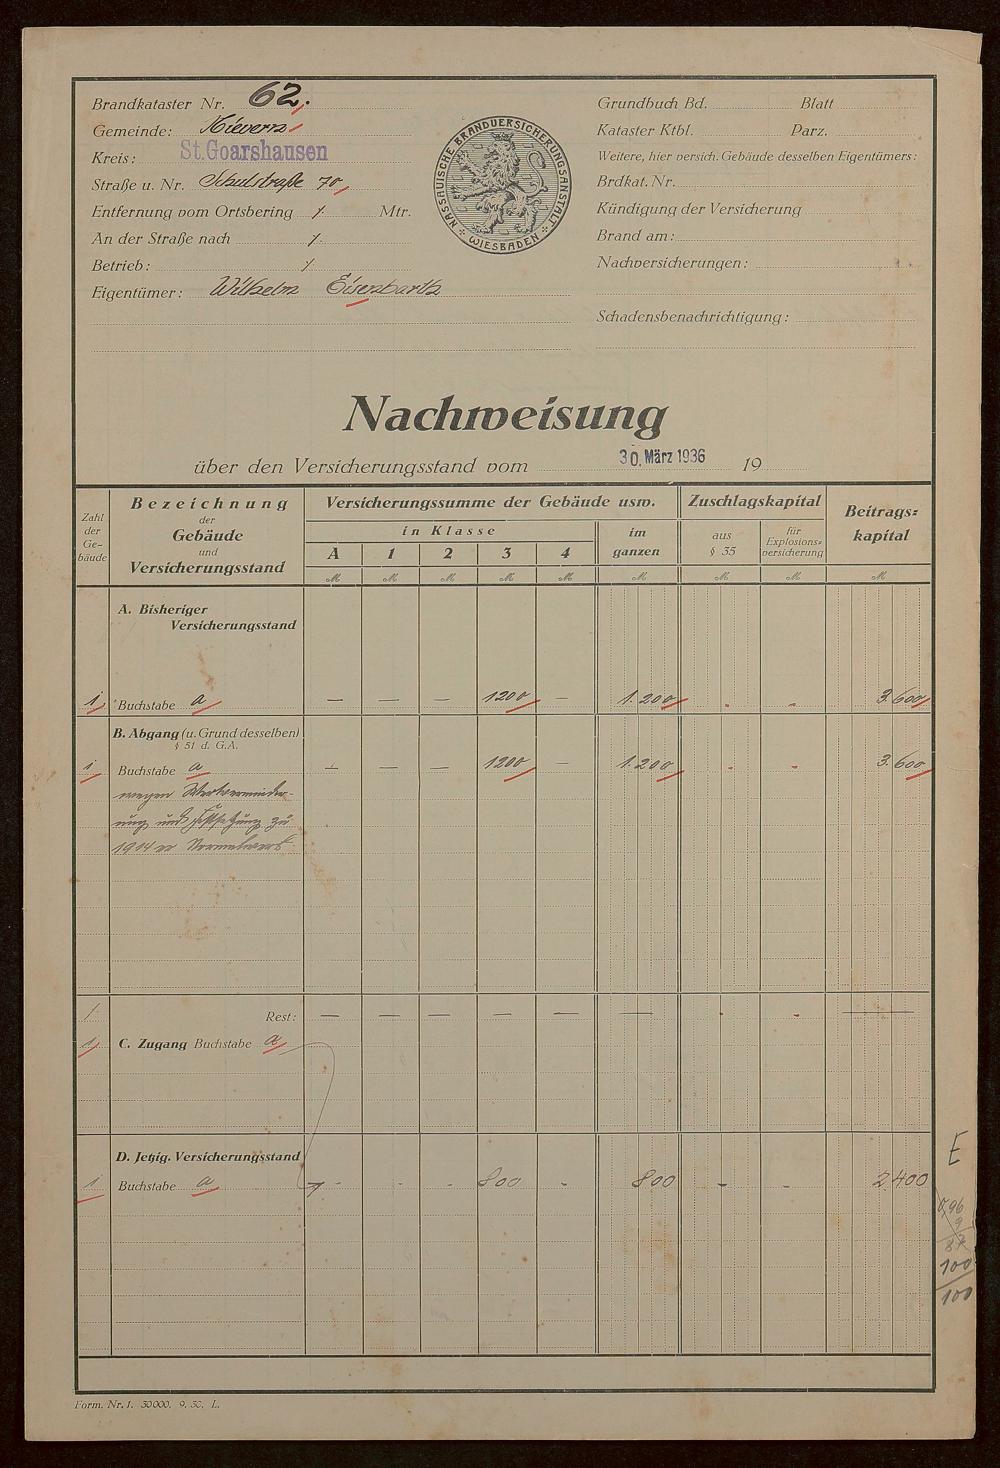 Brandkataster Nr. 62.
Gemeinde: Nievern
Kreis: St. Goarshausen
Straße u. Nr. Schulstraße 70
Entfernung vom Ortsbering /. Mtr.
An der Straße nach /.
Betrieb: /.
Eigentümer: Wilhelm Eisenbarth
NASSAUISCHE BRANDVERSICHERUNGSANSTALT * WIESBADEN *
Grundbuch Bd. Blatt
Kataster Ktbl. Parz.
Weitere, hier versich. Gebäude desselben Eigentümers:
Brdkat. Nr.
Kündigung der Versicherung
Brand am:
Nachversicherungen:
Schadensbenachrichtigung:
Nachweisung
über den Versicherungsstand vom 30. März 1936 19
Zahl der Ge-bäude
Bezeichnung der Gebäude und Versicherungsstand
Versicherungssumme der Gebäude usw.
in Klasse
A 1 2 3 4
im ganzen
Zuschlagskapital
aus § 35
für Explosions-versicherung
Beitrags-kapital
M M M M M M M M M
A. Bisheriger
Versicherungsstand
1 Buchstabe a — — — 1200 — 1.200 - - 3.600
B. Abgang (u. Grund desselben)
§ 51 d. G.A.
1 Buchstabe a — — — 1200 — 1.200 - - 3.600
wegen Wertverminder-
ung und Festsetzung zu
1914 er Normalwert
/ Rest: — — — — — — - - —
1 C. Zugang Buchstabe a
D. Jetzig. Versicherungsstand
1 Buchstabe a - - - 800 - 800 - - 2400
E
0,96
9
87
100
100
Form. Nr. 1. 30000. 9. 30. L.